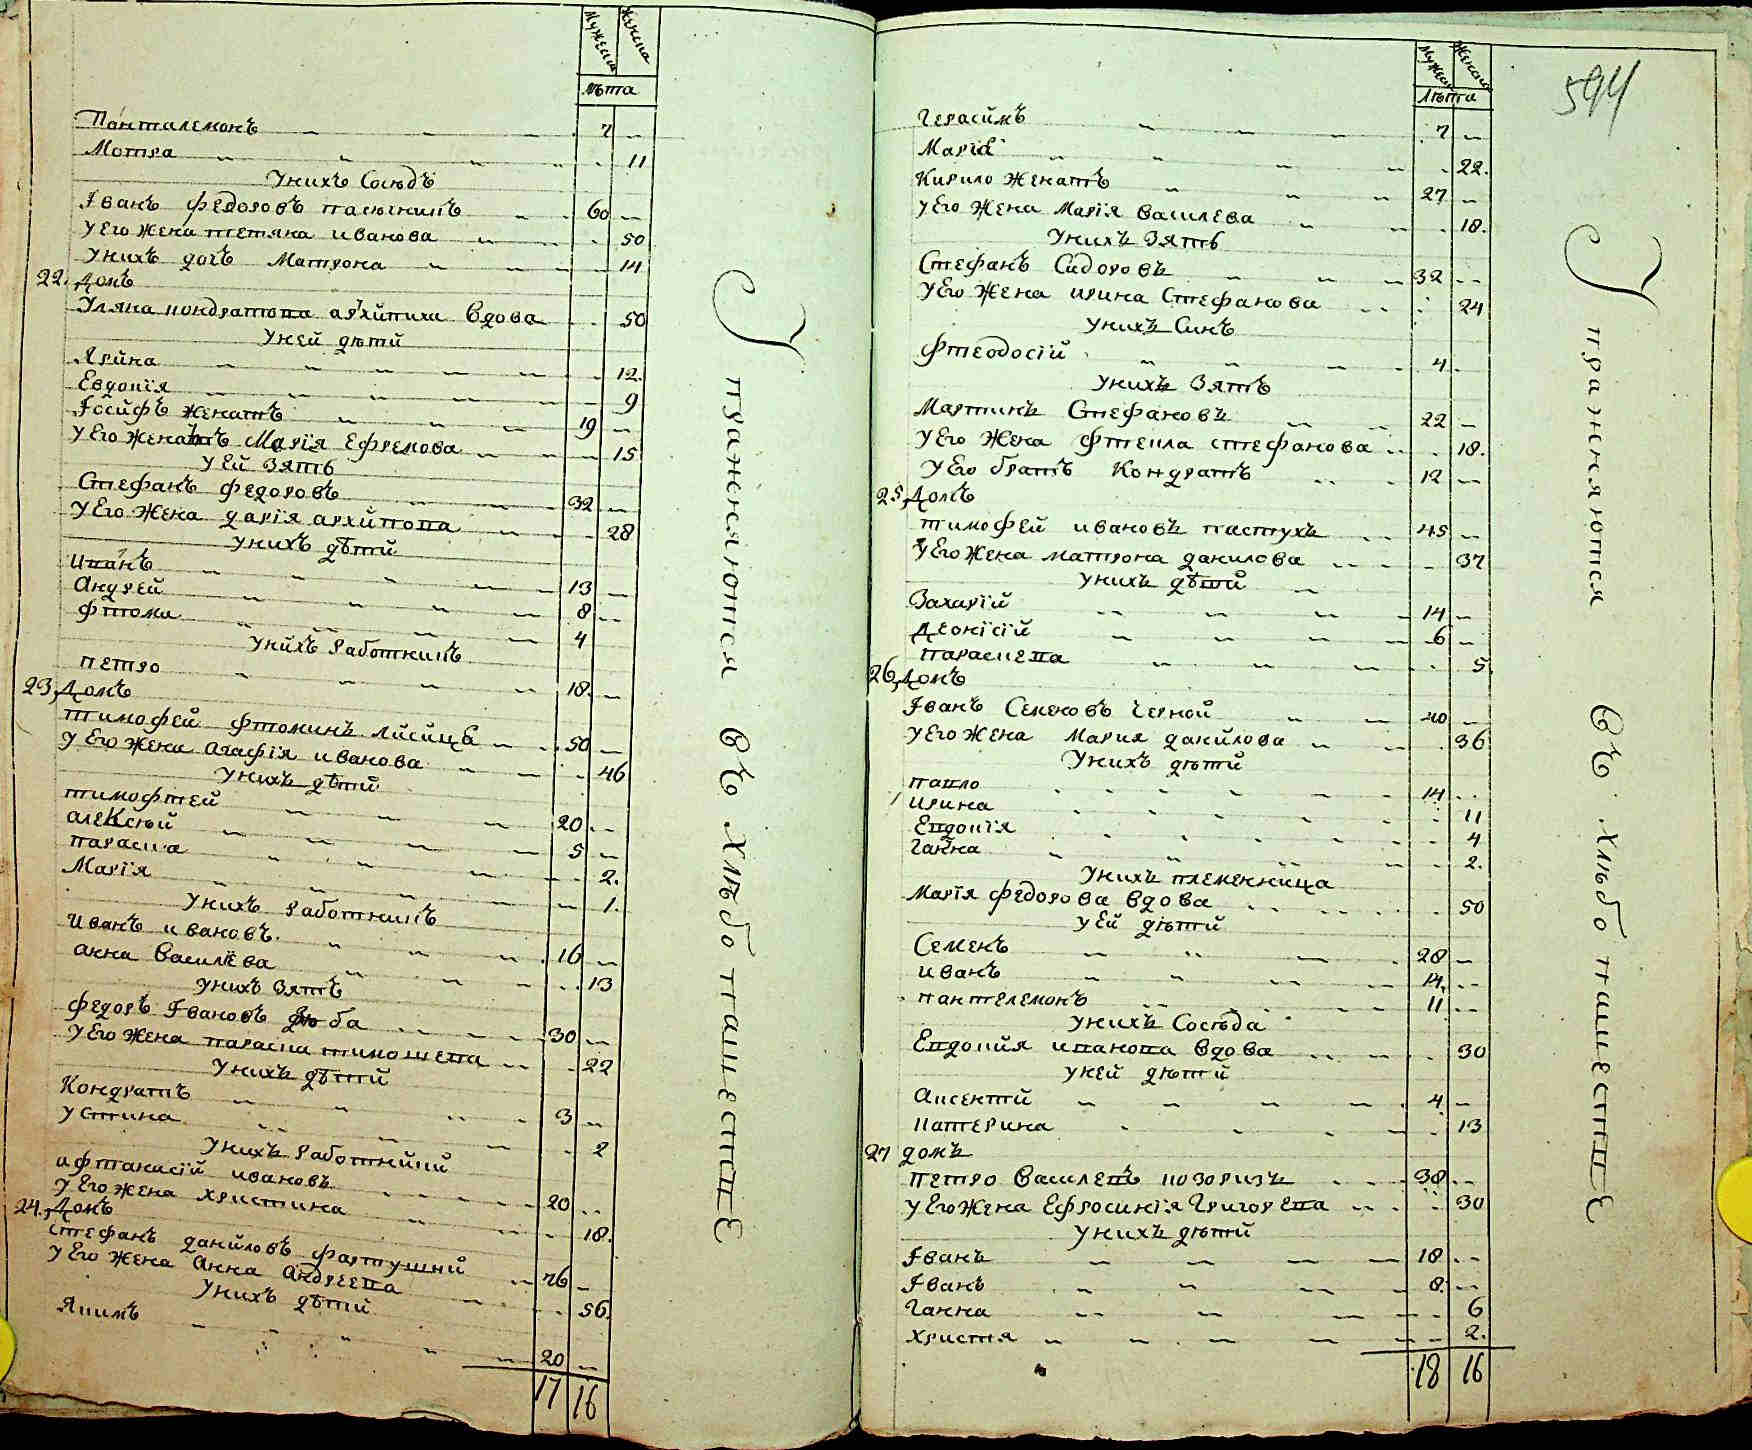 Мужеска Женска
Лѣта
Панталемонъ 7
Мотря 11
Унихъ Сосѣдъ
Іванъ Федоровъ 60
у Его Жена тетяна иванова 50
унихъ дочъ Матрона 14
22. Домъ
Уляна кондратова архипиха Вдова 50
Уней дѣтй
Ярина 12.
Евдокія 9
Іосифъ женатъ 19
у Его Жена Марія Ефремова 15
у Ей Зять
Стефанъ федоровъ 32
у Его Жена дарія архипова 28
Унихъ дѣтй
Иванъ 13
Андрей 8
фтома 4
Унихъ Работникъ
петро 18.
23, Домъ
тимофей фтоминъ лисица 50
у Его Жена агафія иванова 46
Унихъ дѣтй
тимофтей 20
алексѣй 5
параска 2.
Марія 1.
Унихъ работникъ
иванъ ивановъ 16
анна Василіева 13
унихъ Зять
федоръ Івановъ 30
у Его Жена параска тимошева 22
Унихъ дѣтй
Кондратъ 3
устина 2
Унихъ Работники
афтанасій ивановъ 20
у Его жена христина 18.
24., Домъ
стефанъ даниловъ фартушній 76
у Его Жена Анна Андреева 56.
Унихъ дѣтй
Якимъ 20
17 16
Упражняются въ хлѣбопашестве
594
Мужеск Женска
Лѣта
Герасимъ 7
Марія 22.
Кирило Женатъ 27
у Его Жена Марія Василева 18.
Унихъ Зять
Стефанъ Сидоровъ 32
у Его Жена ирина Стефанова 24
Унихъ Синъ
фтеодосій 4
унихъ Зять
Мартинъ Стефановъ 22
у Его Жена фтекла стефанова 18.
у Его братъ Кондратъ 12
25, Домъ
тимофей ивановъ пастухъ 45
у Его Жена матрона данилова 37
унихъ дѣтй
Захарій 14
Деонісій 6
параскева 5.
26, Домъ
Іванъ Семеновъ Черной 40
у Его Жена Мария данилова 36
Унихъ дѣтй
павло 14
ирина 11
Евдокія 4
Ганна 2.
Унихъ племенница
Марія федорова Вдова 50
у Ей дѣтй
Семенъ 28
иванъ 14.
пантелемонъ 11
Унихъ Сосѣда
Евдокия иванова Вдова 30
уней дѣтй
Аксентй 4
катерина 13
27 домъ
петро Василевъ козоризъ 38
у Его Жена Ефросинія Григорева 30
Унихъ дѣтй
Іванъ 18
Іванъ 8.
Ганна 6
христя 2.
18 16
Упражняются въ хлѣбопашестве